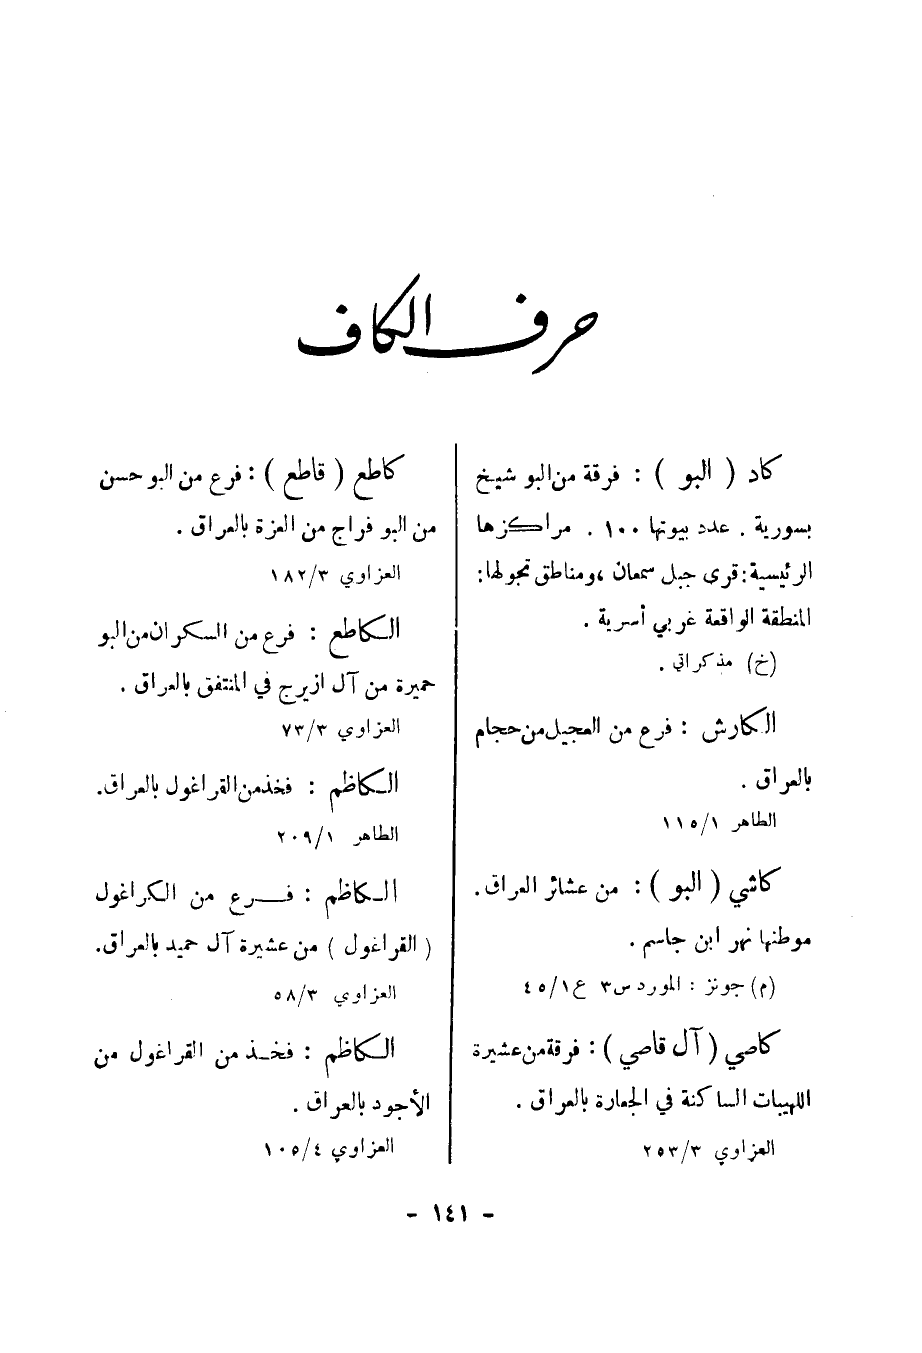 حرف الكاف
كاد ( البو ) : فرقة من البو شيخ
بسورية . عدد بيوتها ١٠٠ . مراكزها
الرئيسية : قرى جبل سمعان ، ومناطق تجولها :
المنطقة الواقعة غربي أسرية .
(خ) مذكراتي .
الكارش : فرع من العجيل من حجام
بالعراق .
الطاهر ١١٥/١
كاشي ( البو ) : من عشائر العراق .
موطنها نهر ابن جاسم .
(م) جونز : المورد س٣ ع١/٤٥
كاصي ( آل قاصي ) : فرقة من عشيرة
اللهيبات الساكنة في الجعارة بالعراق .
العزاوي ٢٥٣/٣
كاطع ( قاطع ) : فرع من البو حسن
من البو فراج من العزة بالعراق .
العزاوي ١٨٢/٣
الكاطع : فرع من السكران من البو
حميرة من آل ازيرج في المنتفق بالعراق .
العزاوي ٧٣/٣
الكاظم : فخذ من القراغول بالعراق .
الطاهر ٢٠٩/١
الكاظم : فرع من الكراغول
( القراغول ) من عشيرة آل حميد بالعراق .
العزاوي ٥٨/٣
الكاظم : فخذ من القراغول من
الأجود بالعراق .
العزاوي ١٠٥/٤
- ١٤١ -